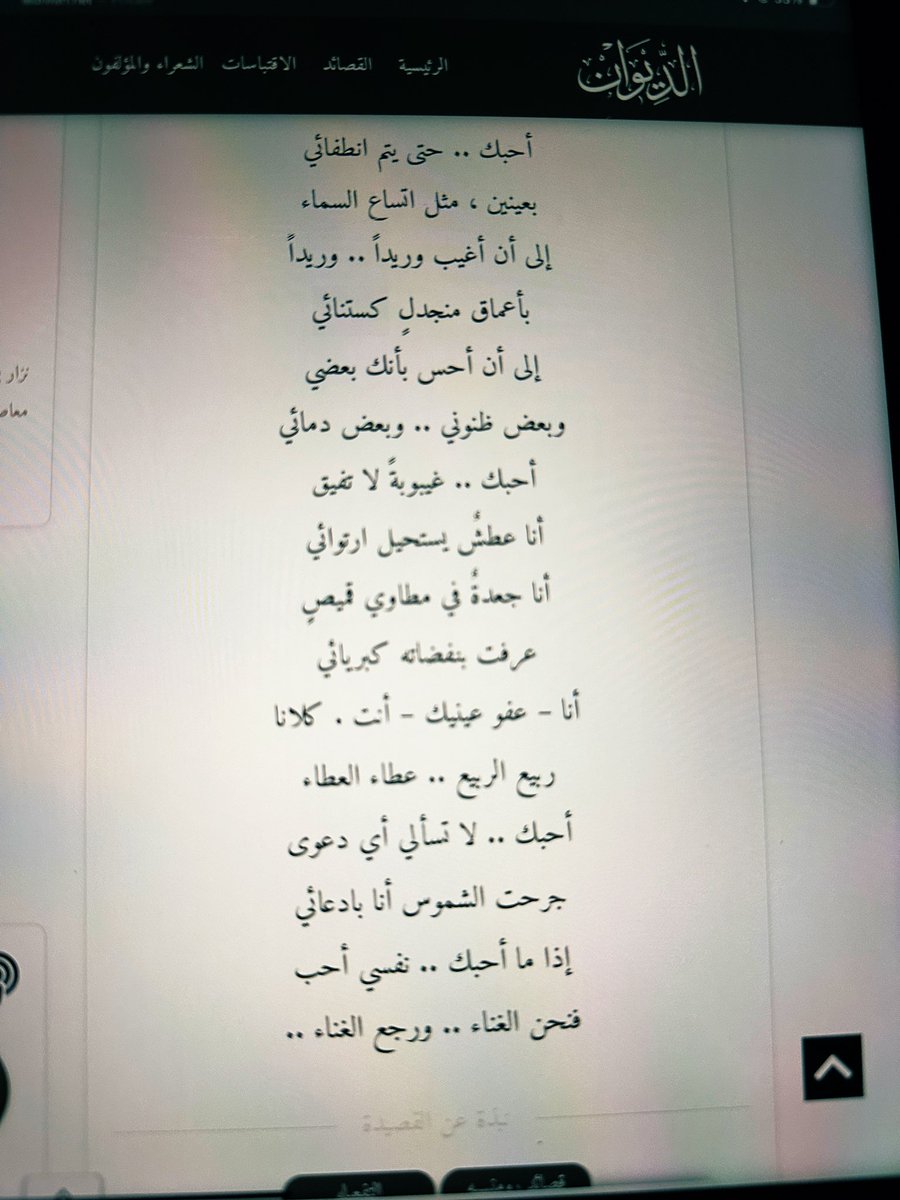 الدِّيوَان
الرئيسية القصائد الاقتباسات الشعراء والمؤلفون
أحبك .. حتى يتم انطفائي
بعينين ، مثل اتساع السماء
إلى أن أغيب وريداً .. وريداً
بأعماق منجدلٍ كستنائي
إلى أن أحس بأنك بعضي
وبعض ظنوني .. وبعض دمائي
أحبك .. غيبوبةً لا تفيق
أنا عطشٌ يستحيل ارتوائي
أنا جعدةٌ في مطاوي قميصٍ
عرفت بنفضاته كبريائي
أنا – عفو عينيك – أنت . كلانا
ربيع الربيع .. عطاء العطاء
أحبك .. لا تسألي أي دعوى
جرحت الشموس أنا بادعائي
إذا ما أحبك .. نفسي أحب
فنحن الغناء .. ورجع الغناء ..
نبذة عن القصيدة
نزار